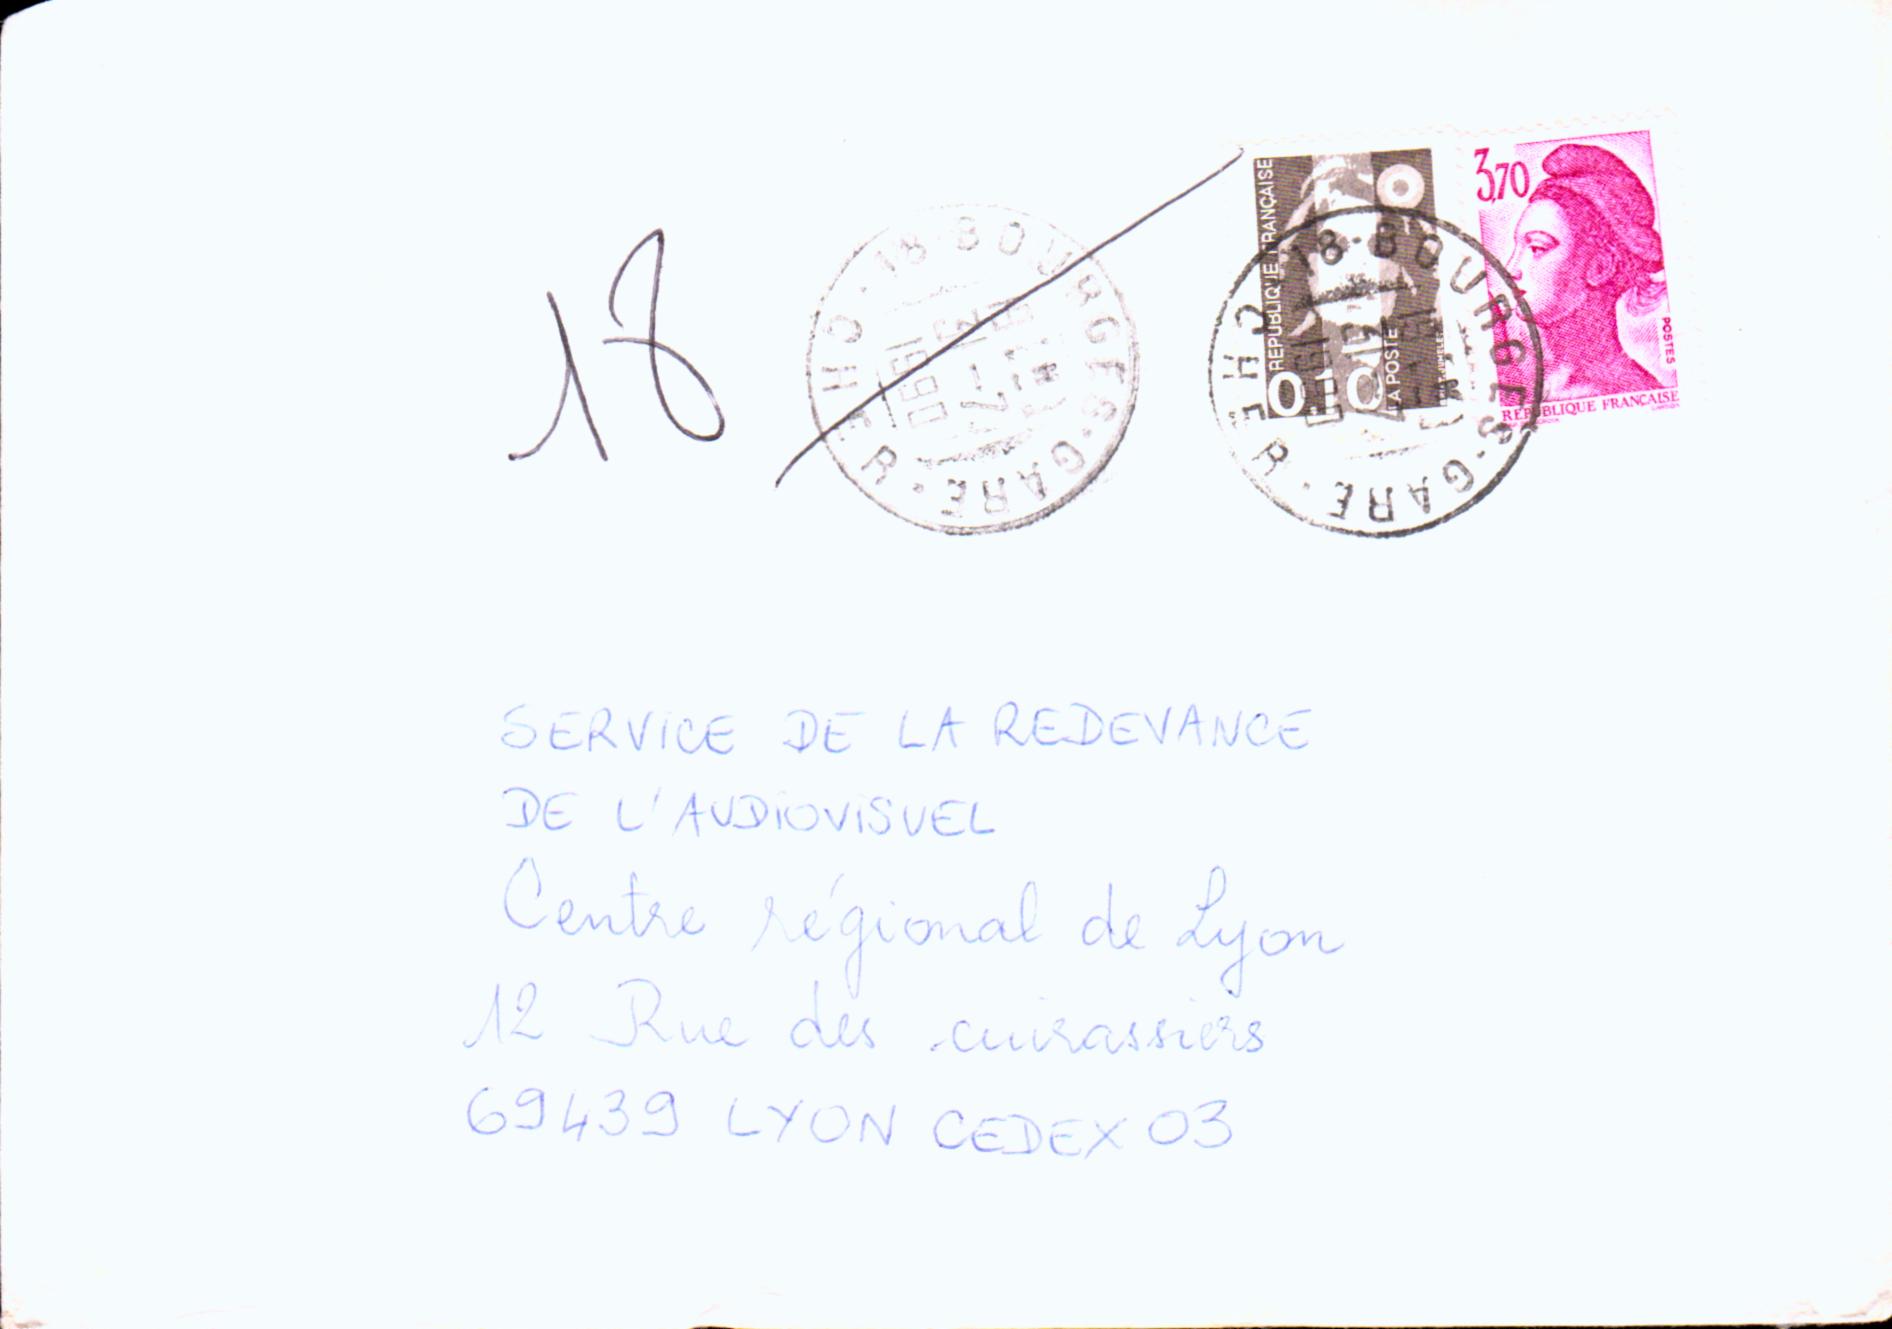 18
18-BOURGES-GARE
CHER
1990
RÉPUBLIQUE FRANÇAISE
0,10
LA POSTE
3,70
POSTES
REPUBLIQUE FRANÇAISE
18-BOURGES-GARE
CHER
SERVICE DE LA REDEVANCE
DE L'AUDIOVISUEL
Centre régional de Lyon
12 Rue des cuirassiers
69439 LYON CEDEX 03